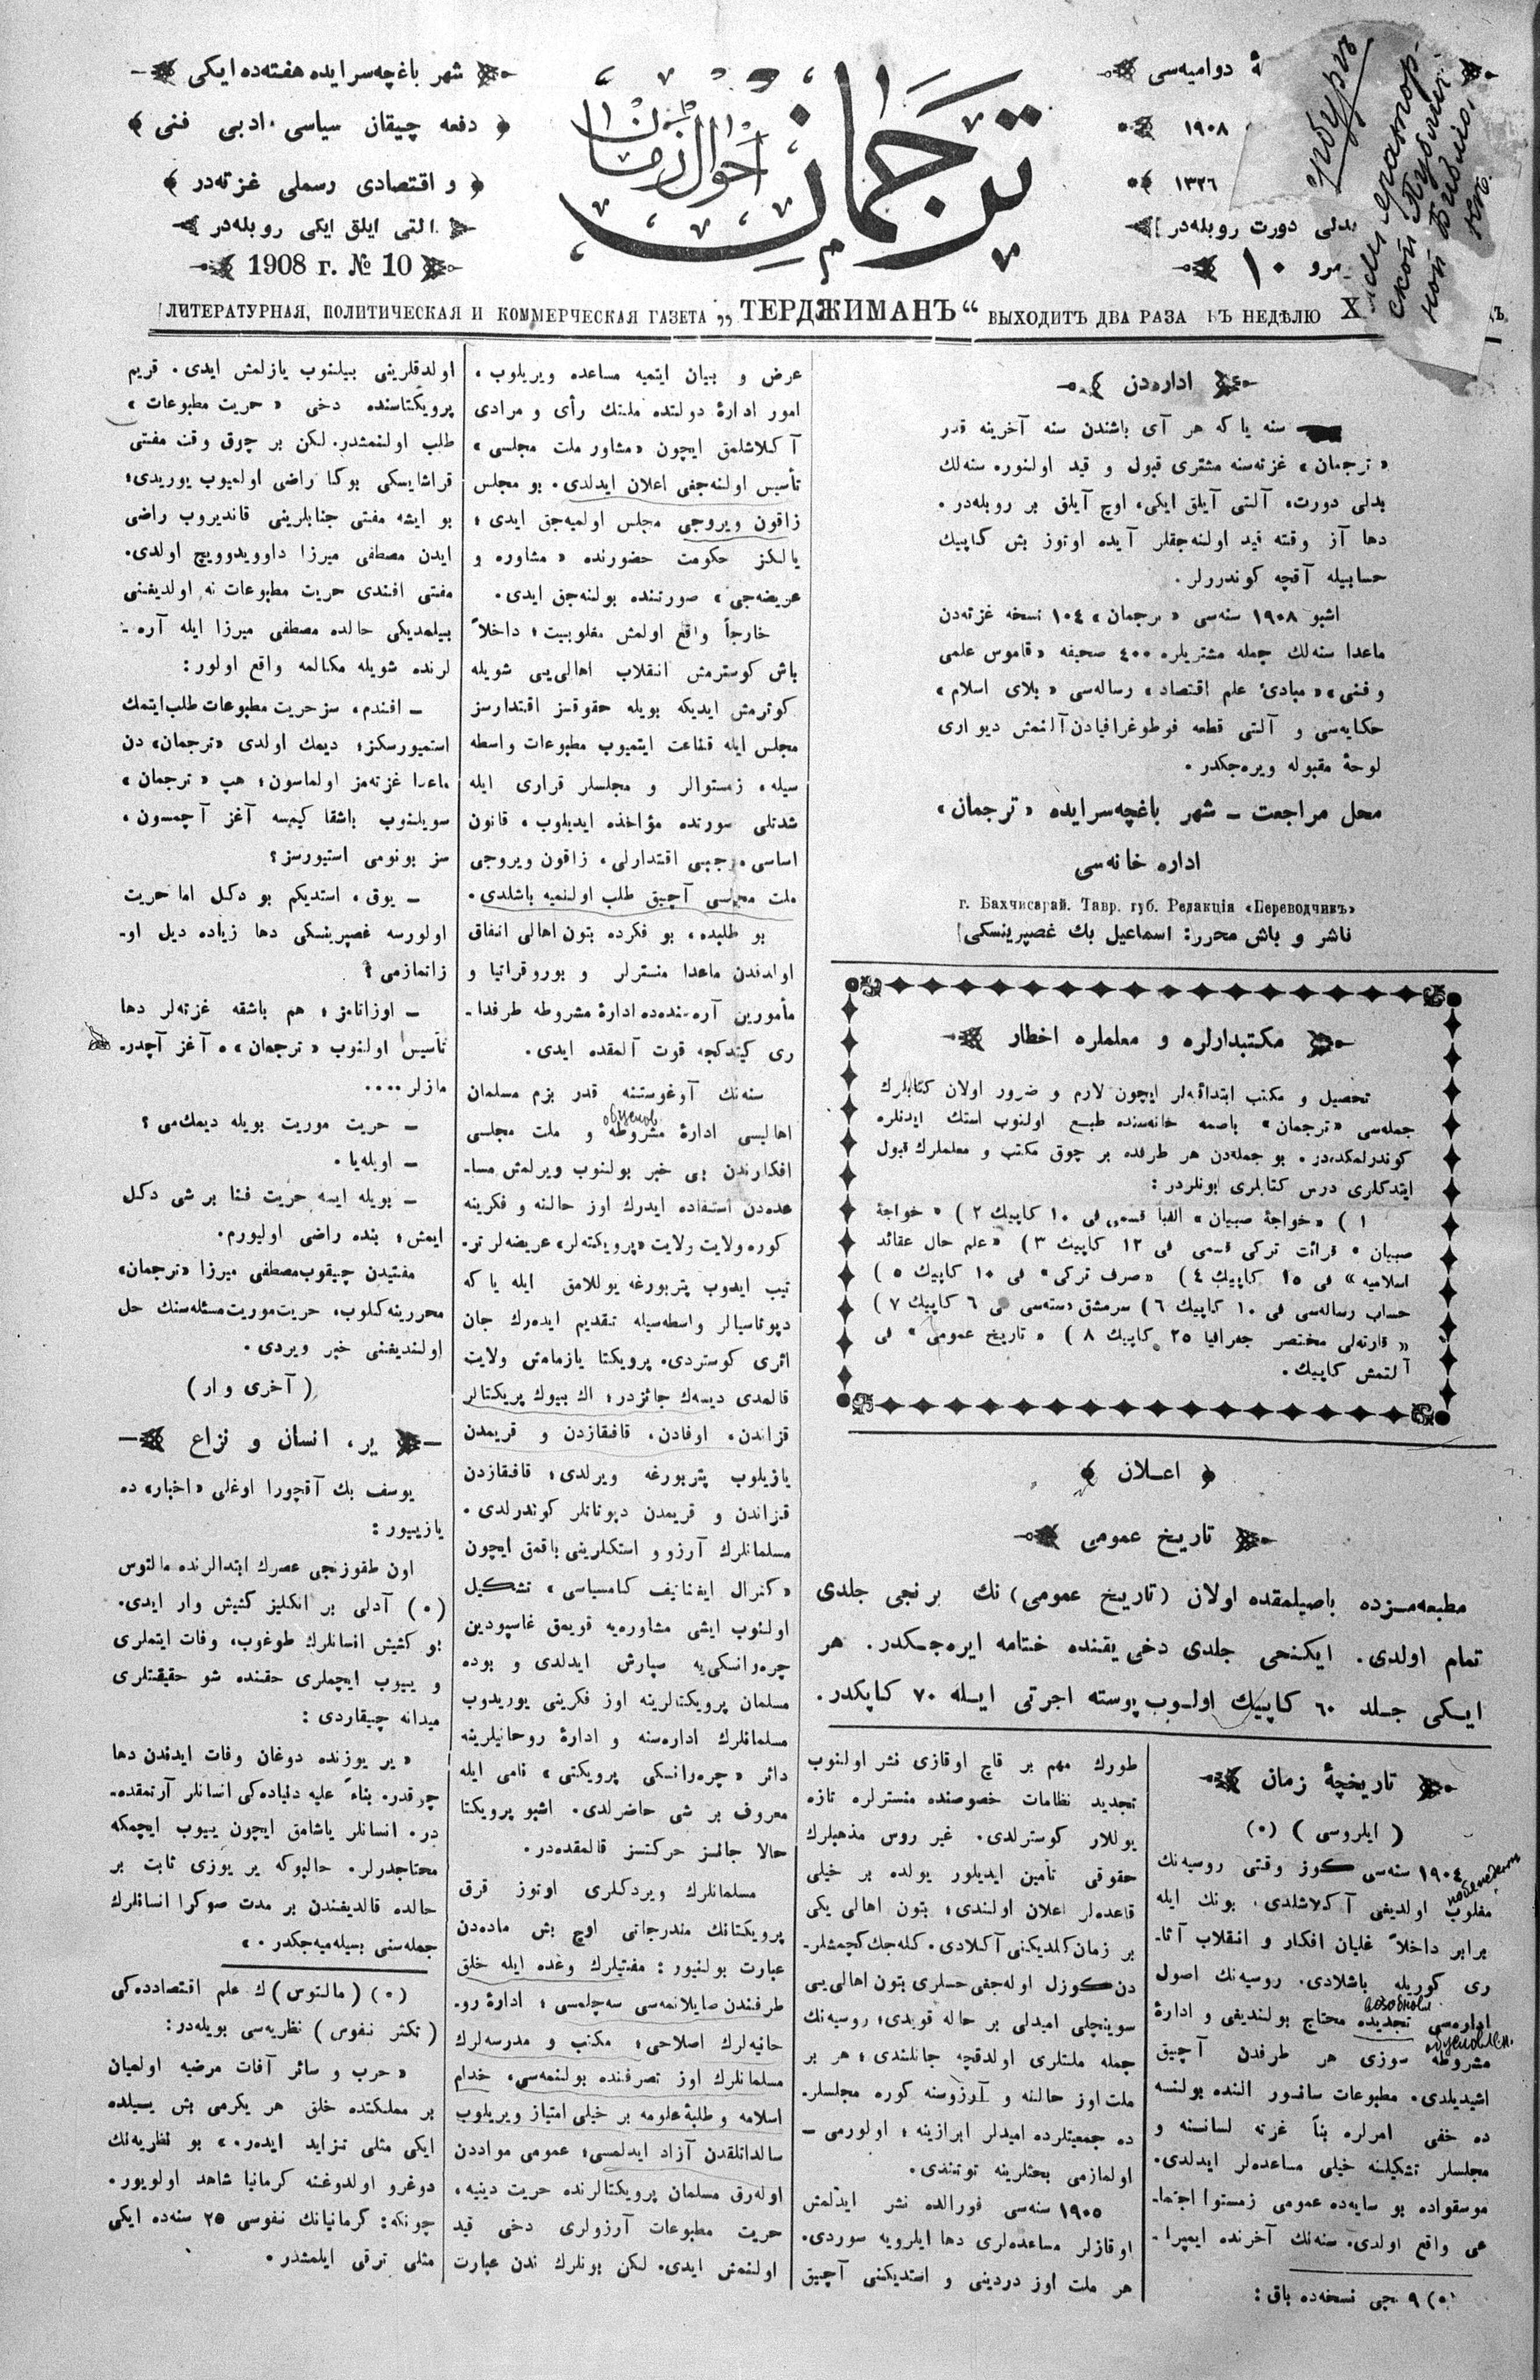 شهر باغچه‌سرایده هفته‌ده ایکی
دفعه چیقان سیاسی، ادبی فنی
و اقتصادی رسملی غزته‌در
التی ایلق ایکی روبله‌در
1908 г. № 10
ترجمان
احوال زمان
ۀ دوامیه‌سی
۱۹۰۸
۱۳۲٦
بدلی دورت روبله‌در
نمرو ۱۰
ЛИТЕРАТУРНАЯ, ПОЛИТИЧЕСКАЯ И КОММЕРЧЕСКАЯ ГАЗЕТА „ТЕРДЖИМАНЪ“ ВЫХОДИТЪ ДВА РАЗА ВЪ НЕДѢЛЮ
اداره‌دن
سنه یا که هر آی باشندن سنه آخرینه قدر
«ترجمان» غزته‌سنه مشتری قبول و قید اولنور. سنه‌لك
بدلی دورت، آلتی آیلق ایکی، اوچ آیلق بر روبله‌در.
دها آز وقته قید اولنه‌جقلر آیده اوتوز بش کاپیك
حسابیله آقچه کوندررلر.
اشبو ۱۹۰۸ سنه‌سی «ترجمان» ۱۰٤ نسخه غزته‌دن
ماعدا سنه‌لك جمله مشتریلره ٤۰۰ صحیفه «قاموس علمی
و فنی» «مبادئ علم اقتصاد» رساله‌سی «بلای اسلام»
حکایه‌سی و آلتی قطعه فوطوغرافیادن آلنمش دیواری
لوحۀ مقبوله ویره‌جکدر.
محل مراجعت ـ شهر باغچه‌سرایده «ترجمان»
اداره خانه‌سی
г. Бахчисарай. Тавр. губ. Редакція «Переводчикъ»
ناشر و باش محرر: اسماعیل بك غصپرینسکی
مکتبدارلره و معلملره اخطار
تحصیل و مکتب ابتدائیه‌لر ایچون لازم و ضرور اولان کتابلرك
جمله‌سی «ترجمان» باصمه خانه‌سنده طبع اولنوب استك ایدنلره
کوندرلمکده‌در. بو جمله‌دن هر طرفده بر چوق مکتب و معلملرك قبول
ایتدکلری درس کتابلری بونلردر:
۱) «خواجۀ صبیان» الفبا قسمی فی ۱۰ کاپیك ۲) «خواجۀ
صبیان» قرائت ترکی قسمی فی ۱۲ کاپیك ۳) «علم حال عقائد
اسلامیه» فی ۱٥ کاپیك ٤) «صرف ترکی» فی ۱۰ کاپیك ٥)
حساب رساله‌سی فی ۱۰ کاپیك ٦) سرمشق دسته‌سی فی ٦ کاپیك ۷)
«قارته‌لی مختصر جغرافیا ۲٥ کاپیك ۸) «تاریخ عمومی» فی
آلتمش کاپیك.
اعلان
تاریخ عمومی
مطبعه‌مزده باصیلمقده اولان (تاریخ عمومی) نك برنجی جلدی
تمام اولدی. ایکنجی جلدی دخی یقنده ختامه ایره‌جکدر. هر
ایکی جلد ٦۰ کاپیك اولوب پوسته اجرتی ایله ۷۰ کاپکدر.
تاریخچۀ زمان
(ایلروسی) (٠)
۱۹۰٤ سنه‌سی کوز وقتی روسیه‌نك
مغلوب اولدیغی آکلاشلدی. بونك ایله
برابر داخلاً غلیان افکار و انقلاب آثا-
ری کوریله باشلادی. روسیه‌نك اصول
اداره‌سی تجدیده محتاج بولندیغی و ادارۀ
مشروطه سوزی هر طرفدن آچیق
اشیدیلدی. مطبوعات سانسور النده بولنسه
ده خفی امرلره بناً غزته لسانسنه و
مجلسلر تشکیلنه خیلی مساعده‌لر ایدلدی.
موسقواده بو سایه‌ده عمومی زمستوا اجتما-
عی واقع اولدی. سنه‌نك آخرنده ایمپرا-
(٠) ۹ نجی نسخه‌ده باق:
طورك مهم بر قاچ اوقازی نشر اولنوب
تجدید نظامات خصوصنده منسترلره تازه
یوللار کوسترلدی. غیر روس مذهبلرك
حقوقی تأمین ایدیلور یولده بر خیلی
قاعده‌لر اعلان اولندی؛ بتون اهالی یکی
بر زمان کلدیکنی آکلادی. کله‌جك کچمشلر-
دن کوزل اوله‌جغی حسلری بتون اهالی‌یی
سوینچلی امیدلی بر حاله قویدی؛ روسیه‌نك
جمله ملتلری اولدقچه جانلندی؛ هر بر
ملت اوز حالنه و آرزوسنه کوره مجلسلر-
ده جمعیتلرده امیدلر ابرازینه؛ اولورمی ـ
اولمازمی بحثلرینه توتندی.
۱۹۰٥ سنه‌سی فورالده نشر ایدلمش
اوقازلر مساعده‌لری دها ایلرویه سوردی.
هر ملت اوز دردینی و استدیکنی آچیق
عرض و بیان ایتمیه مساعده ویریلوب،
امور ادارۀ دولتده ملتك رأی و مرادی
آکلاشلمق ایچون «مشاور ملت مجلسی»
تأسیس اولنه‌جغی اعلان ایدلدی. بو مجلس
زاقون ویروجی مجلس اولمیه‌جق ایدی؛
یالکز حکومت حضورنده «مشاوره و
عریضه‌جی» صورتنده بولنه‌جق ایدی.
خارجاً واقع اولمش مغلوبیت؛ داخلاً
باش کوسترمش انقلاب اهالی‌یی شویله
کوترمش ایدیکه بویله حقوقسز اقتدارسز
مجلس ایله قناعت ایتمیوب مطبوعات واسطه
سیله، زمستوالر و مجلسلر قراری ایله
شدتلی صورتده مؤاخذه ایدیلوب، قانون
اساسی موجبی اقتدارلی، زاقون ویروجی
ملت مجلسی آچیق طلب اولنمیه باشلدی.
بو طلبده، بو فکرده بتون اهالی اتفاق
اولدقدن ماعدا منسترلر و بوروقراتیا و
مأمورین آره‌سنده‌ده ادارۀ مشروطه طرفدا-
ری کیتدکجه قوت آلمقده ایدی.
سنه‌نك آوغوستنه قدر بزم مسلمان
اهالیسی ادارۀ مشروطه و ملت مجلسی
افکارندن بی خبر بولنوب ویرلمش مسا-
عده‌دن استفاده ایدرك اوز حالنه و فکرینه
کوره ولایت ولایت «پرویکته‌لر» عریضه‌لر تر-
تیب ایدوب پتربورغه یوللامق ایله یا که
دپوتاسیالر واسطه‌سیله تقدیم ایده‌رك جان
اثری کوستردی. پرویکتا یازمامش ولایت
قالمدی دیسه‌ك جائزدر؛ اك بیوك پریکتالر
قزاندن، اوفادن، قافقازدن و قریمدن
یازیلوب پتربورغه ویرلدی؛ قافقازدن
قزاندن و قریمدن دپوتاتلر کوندرلدی.
مسلمانلرك آرزو و استکلرینی باقمق ایچون
«کنرال ایغناتیف کامسیاسی» تشکیل
اولنوب ایشی مشاوره‌یه قویمق غاسپودین
چره‌وانسکی‌یه سپارش ایدلدی و بوده
مسلمان پرویکتالرینه اوز فکرینی یوریدوب
مسلمانلرك اداره‌سنه و ادارۀ روحانیلرینه
دائر «چره‌وانسکی پرویکتی» نامی ایله
معروف بر شی حاضرلدی. اشبو پرویکتا
حالا جانسز حرکتسز قالمقده‌در.
مسلمانلرك ویردکلری اوتوز قرق
پرویکتانك مندرجاتی اوچ بش ماده‌دن
عبارت بولنیور: مفتیلرك وعده ایله خلق
طرفندن صایلانمه‌سی سه‌چلمسی؛ ادارۀ رو-
حانیه‌لرك اصلاحی؛ مکتب و مدرسه‌لرك
مسلمانلرك اوز تصرفنده بولنمه‌سی، خدام
اسلامه و طلبۀ علومه بر خیلی امتیاز ویریلوب
سالداتلقدن آزاد ایدلمسی؛ عمومی مواددن
اوله‌رق مسلمان پرویکتالرنده حریت دینیه،
حریت مطبوعات آرزولری دخی قید
اولنمش ایدی. لکن بونلرك ندن عبارت
اولدقلرینی بیلنوب یازلمش ایدی. قریم
پرویکتاسنده دخی «حریت مطبوعات»
طلب اولنمشدر. لکن بر چوق وقت مفتی
قراشایسکی بوکا راضی اولمیوب یوریدی؛
بو ایشه مفتی جنابلرینی قاندیروب راضی
ایدن مصطفی میرزا داویدوویچ اولدی.
مفتی افندی حریت مطبوعات نه اولدیغنی
بیلمدیکی حالده مصطفی میرزا ایله آره-
لرنده شویله مکالمه واقع اولور:
ـ افندم، سز حریت مطبوعات طلب ایتمك
استمیورسکز؛ دیمك اولدی «ترجمان» دن
ماعدا غزته‌مز اولماسون؛ هپ «ترجمان»
سویلنوب باشقا کیمسه آغز آچمسون،
سز بونومی استیورسز؟
ـ یوق، استدیکم بو دکل اما حریت
اولورسه غصپرینسکی دها زیاده دیل او-
زاتمازمی؟
ـ اوزاتامز؛ هم باشقه غزته‌لر دها
تأسیس اولنوب «ترجمان»ه آغز آچدر-
مازلر....
ـ حریت موریت بویله دیمك‌می؟
ـ اویله‌یا.
ـ بویله ایسه حریت فنا بر شی دکل
ایمش؛ بنده راضی اولیورم.
مفتیدن چیقوب مصطفی میرزا «ترجمان»
محررینه کلوب، حریت موریت مسئله‌سنك حل
اولندیغنی خبر ویردی.
(آخری وار)
یر، انسان و نزاع
یوسف بك آقچورا اوغلی «اخبار» ده
یازییور:
اون طقوزنجی عصرك ابتدالرنده مالتوس
(٠) آدلی بر انکلیز کشیش وار ایدی.
بو کشیش انسانلرك طوغوب، وفات ایتملری
و ییوب ایچملری حقنده شو حقیقتلری
میدانه چیقاردی:
«یر یوزنده دوغان وفات ایدندن دها
چوقدر. بناءً علیه دنیاده‌کی انسانلر آرتمقده-
در. انسانلر یاشامق ایچون ییوب ایچمکه
محتاجدرلر. حالبوکه یر یوزی ثابت بر
حالده قالدیغندن بر مدت صوکرا انسانلرك
جمله‌سنی بسیله‌میه‌جکدر.»
(٠) (مالتوس)ك علم اقتصادده‌کی
(تکثر نفوس) نظریه‌سی بویله‌در:
«حرب و سائر آفات مرضیه اولمیان
بر مملکتده خلق هر یکرمی بش ییلده
ایکی مثلی تزاید ایده‌ر.» بو نظریه‌نك
دوغرو اولدوغنه کرمانیا شاهد اولویور.
چونکه: کرمانیانك نفوسی ۲٥ سنه‌ده ایکی
مثلی ترقی ایلمشدر.